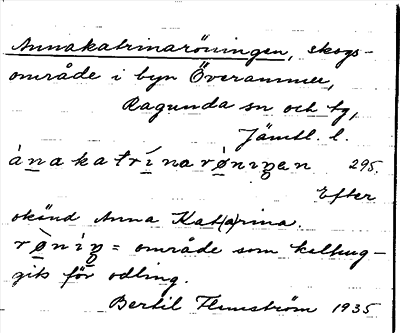 Annakatrinaröningen, skogs-
område i byn Överammer,
Ragunda sn och tg,
Jämtl. l.
ànakatrínarø̀niŋen 295.
Efter
okänd Anna Kat(a)rina.
rø̀niŋ = område som kalhug-
gits för odling.
Bertil Flemström 1935